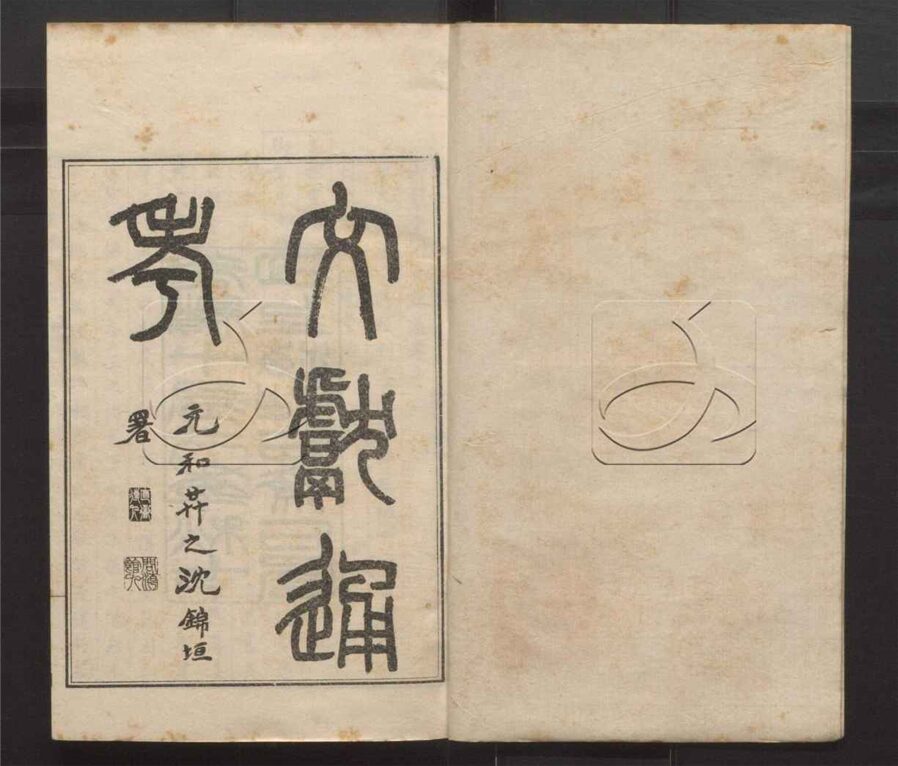 文獻通
考
元和弅之沈錦垣
署